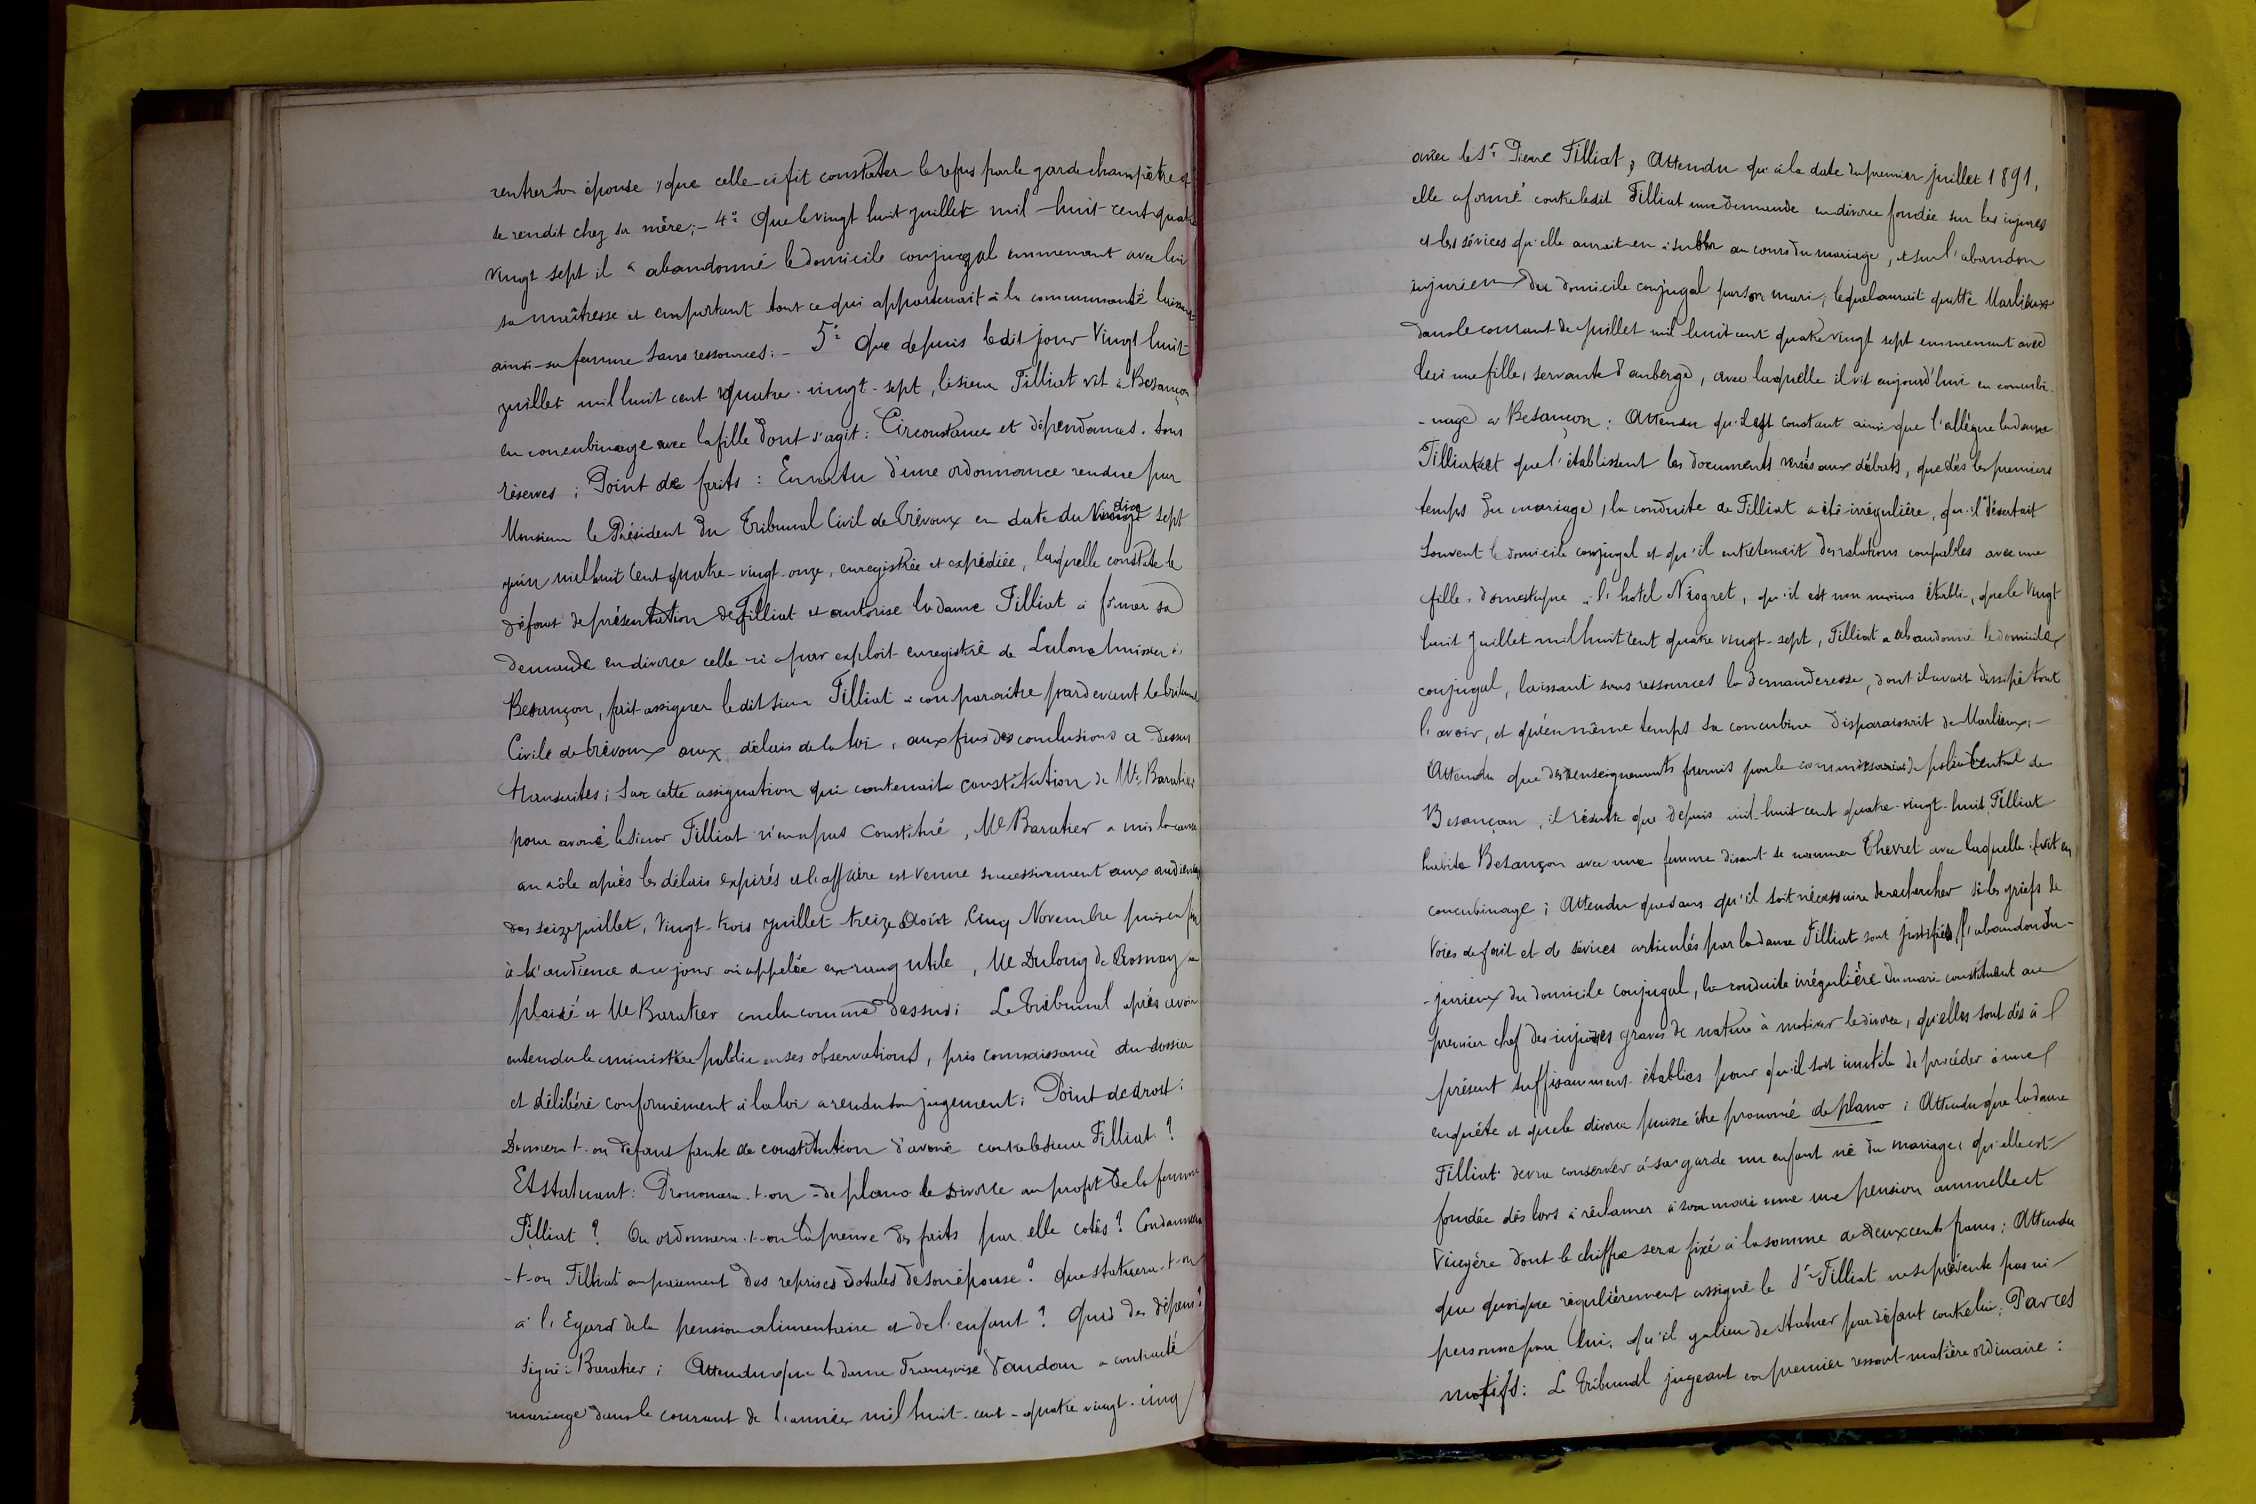 rentrer son épouse ; que celle-ci fit constater le refus par le garde champêtre et
se rendit chez sa mère ; - 4° Que le vingt huit juillet mil-huit-cent quatre
vingt sept il a abandonné le domicile conjugal emmenant avec lui
sa maîtresse et emportant tout ce qui appartenait à la communauté laissant
ainsi sa femme sans ressources ; - 5° Que depuis ledit jour Vingt huit
juillet mil huit cent quatre-vingt-sept, le sieur Filliat vit à Besançon
en concubinage avec la fille dont s'agit : Circonstances et dépendances. Sous
réserves ; Point de faits : En vertu d'une ordonnance rendue par
Monsieur le Président du Tribunal Civil de Trévoux en date du dix sept
juin mil huit Cent quatre-vingt-onze, enregistrée et expédiée, laquelle constate le
défaut de présentation de Filliat et autorise la dame Filliat à former sa
demande en divorce celle-ci a par exploit enregistré de huissier à
Besançon, fait assigner ledit sieur Filliat à comparaître pardevant le tribunal
Civile de Trévoux aux délais de la loi, aux fins des conclusions ci-dessus
transcrites ; Sur cette assignation qui contenait constitution de Me Baratier
pour avoué le sieur Filliat n'en a pas Constitué, Me Baratier a mis la cause
au rôle après les délais expirés et l'affaire est venue successivement aux audiences
des seize juillet, Vingt-trois juillet treize Août Cinq Novembre puis enfin
à l'audience de ce jour où appelée en rang utile, Me Dulong de Rosnay a
plaidé et Me Baratier conclu comme dessus ; Le Tribunal après avoir
entendu le ministère public en ses observations, pris connaissance du dossier
et délibéré conformément à la loi a rendu son jugement ; Point de droit :
Donnera-t-on défaut faute de constitution d'avoué contre le sieur Filliat ?
Et statuant : Prononcera-t-on de plano le Divorce au profit de la femme
Filliat ? Ou ordonnera-t-on la preuve des faits par elle cotés ? Condamnera
-t-on Filliat au paiement des reprises dotales de son épouse ? Que statuera-t-on
à l'Egard de la pension alimentaire et de l'enfant ? Quid des dépens ?
Signé : Baratier ; Attendu que la dame Françoise Vaudou a contracté
mariage dans le courant de l'année mil huit-cent-quatre vingt-cinq
avec le Sr Pierre Filliat ; Attendu qu'à la date du premier juillet 1891,
elle a formé contre ledit Filliat une demande en divorce fondée sur les injures
et les sévices qu'elle aurait eu à subir au cours du mariage, et sur l'abandon
injurieux du domicile conjugal par son mari ; lequel aurait quitté Marlieux
dans le courant de juillet mil huit cent quatre vingt sept emmenant avec
lui une fille, servante d'auberge, avec laquelle il vit aujourd'hui en concubi-
-nage à Besançon ; Attendu qu'il est constant ainsi que l'allègue la dame
Filliat et que l'établissent les documents versés aux débats, que dès les premiers
temps du mariage, la conduite de Filliat a été irrégulière, qu'il désertait
souvent le domicile conjugal et qu'il entretenait des relations coupables avec une
fille domestique à l'hotel Niogret, qu'il est non moins établi, que le Vingt
huit Juillet mil huit Cent quatre vingt-sept, Filliat a abandonné le domicile
conjugal, laissant sans ressources la demanderesse, dont il avait dissipé tout
l'avoir, et qu'en même temps sa concubine disparaissait de Marlieux ; -
Attendu que des renseignements fournis par le commissaire de police Central de
Besançon, il résulte que depuis mil-huit cent quatre-vingt-huit Filliat
habite Besançon avec une femme disant se nommer Chevret avec laquelle il vit en
concubinage ; Attendu que sans qu'il soit nécessaire de rechercher si les griefs de
Voies de fait et de sévices articulés par la dame Filliat sont justifiés, l'abandon in-
-jurieux du domicile conjugal, la conduite irrégulière du mari constituent au
premier chef des injures graves de nature à motiver le divorce, qu'elles sont dès à
présent suffisamment établies pour qu'il soit inutile de procéder à une
enquête et que le divorce puisse être prononcé de plano ; Attendu que la dame
Filliat devra conserver à sa garde un enfant né du mariage, qu'elle est
fondée dès lors à réclamer à son mari une une pension annuelle et
Viagère dont le chiffre sera fixé à la somme de deux cents francs ; Attendu
que quoique régulièrement assigné le Sr Filliat ne se présente pas ni
personne pour lui, qu'il y a lieu de statuer par défaut contre lui ; Par ces
motifs : Le Tribunal jugeant en premier ressort matière ordinaire :